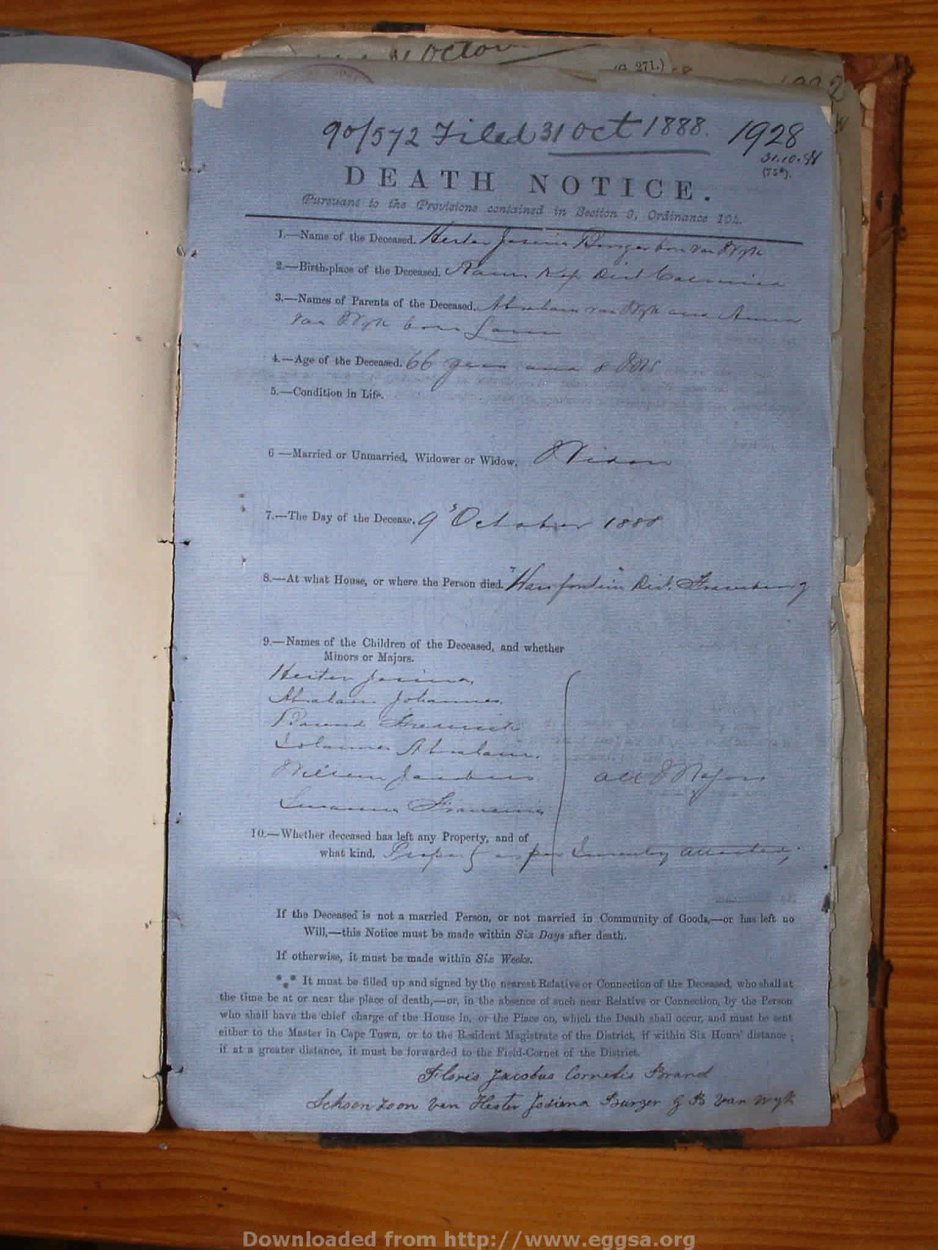 Octo
(G. 271.)
90/572 Filed 31 Oct 1888. 1928
31.10.88
DEATH NOTICE.
Pursuant to the Provisions contained in Section 9, Ordinance 104.
1.—Name of the Deceased. Hester Burger born van Wyk
2.—Birth-place of the Deceased. Dist
3.—Names of Parents of the Deceased. Abraham van Wyk and Anna
van Wyk born
4.—Age of the Deceased. 66 years and 8
5.—Condition in Life.
6 —Married or Unmarried, Widower or Widow. Widow
7.—The Day of the Decease. 9 October 1888
8.—At what House, or where the Person died. Dist. Fraserburg
9.—Names of the Children of the Deceased, and whether
Minors or Majors.
Hester
Abraham Johannes,
Barend Frederick
Johannes Abraham.
Willem Jacobus all Majors
Susanna Francina
10.—Whether deceased has left any Property, and of
what kind. Property as per Inventory attached;
If the Deceased is not a married Person, or not married in Community of Goods,—or has left no
Will,—this Notice must be made within Six Days after death.
If otherwise, it must be made within Six Weeks.
*** It must be filled up and signed by the nearest Relative or Connection of the Deceased, who shall at
the time be at or near the place of death,—or, in the absence of such near Relative or Connection, by the Person
who shall have the chief charge of the House in, or the Place on, which the Death shall occur, and must be sent
either to the Master in Cape Town, or to the Resident Magistrate of the District, if within Six Hours' distance;
if at a greater distance, it must be forwarded to the Field-Cornet of the District.
Floris Jacobus Cornelis Brand
Schoon zoon van Hester Josiena Burger g B van Wyk
Downloaded from http://www.eggsa.org